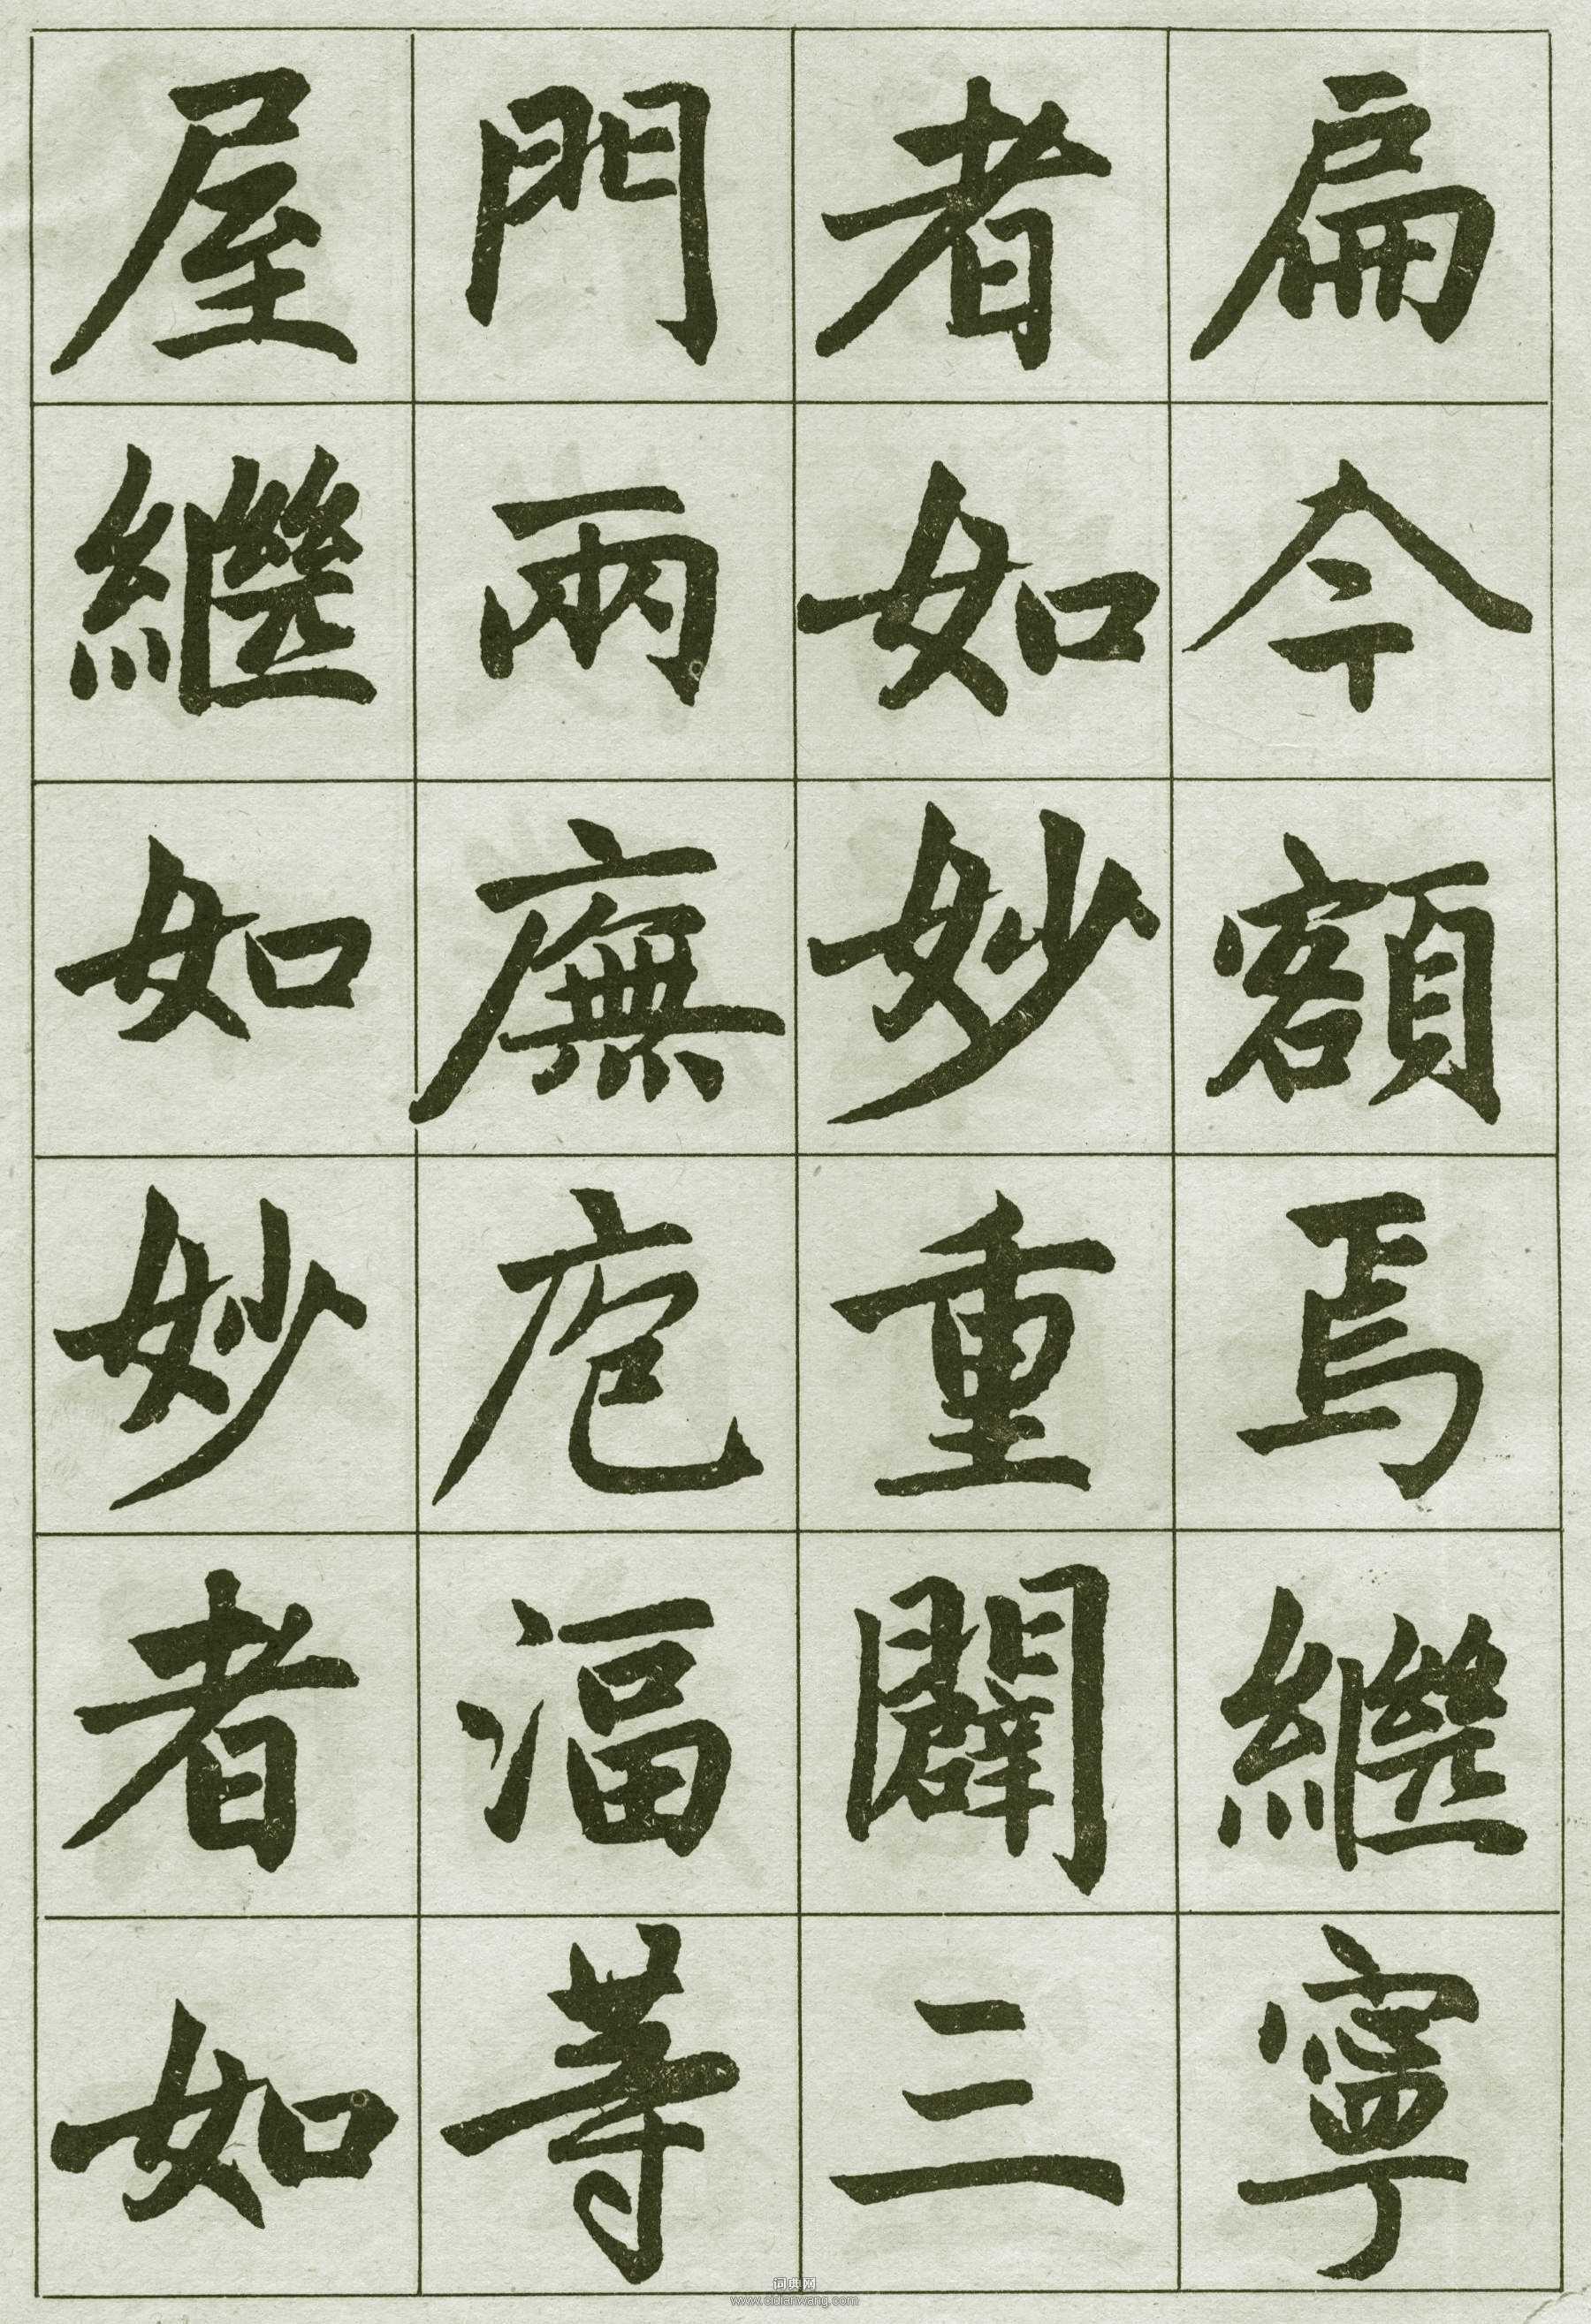 扁今額焉繼寧
者如妙重闢三
門兩廡庖湢等
屋繼如妙者如
词典网
www.cidianwang.com